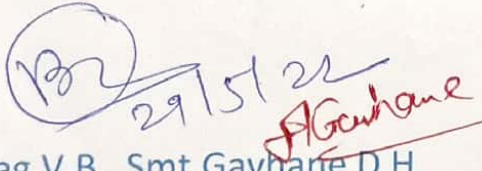 29/5/22
DGavhane
ag V.B. Smt Gavhane D.H